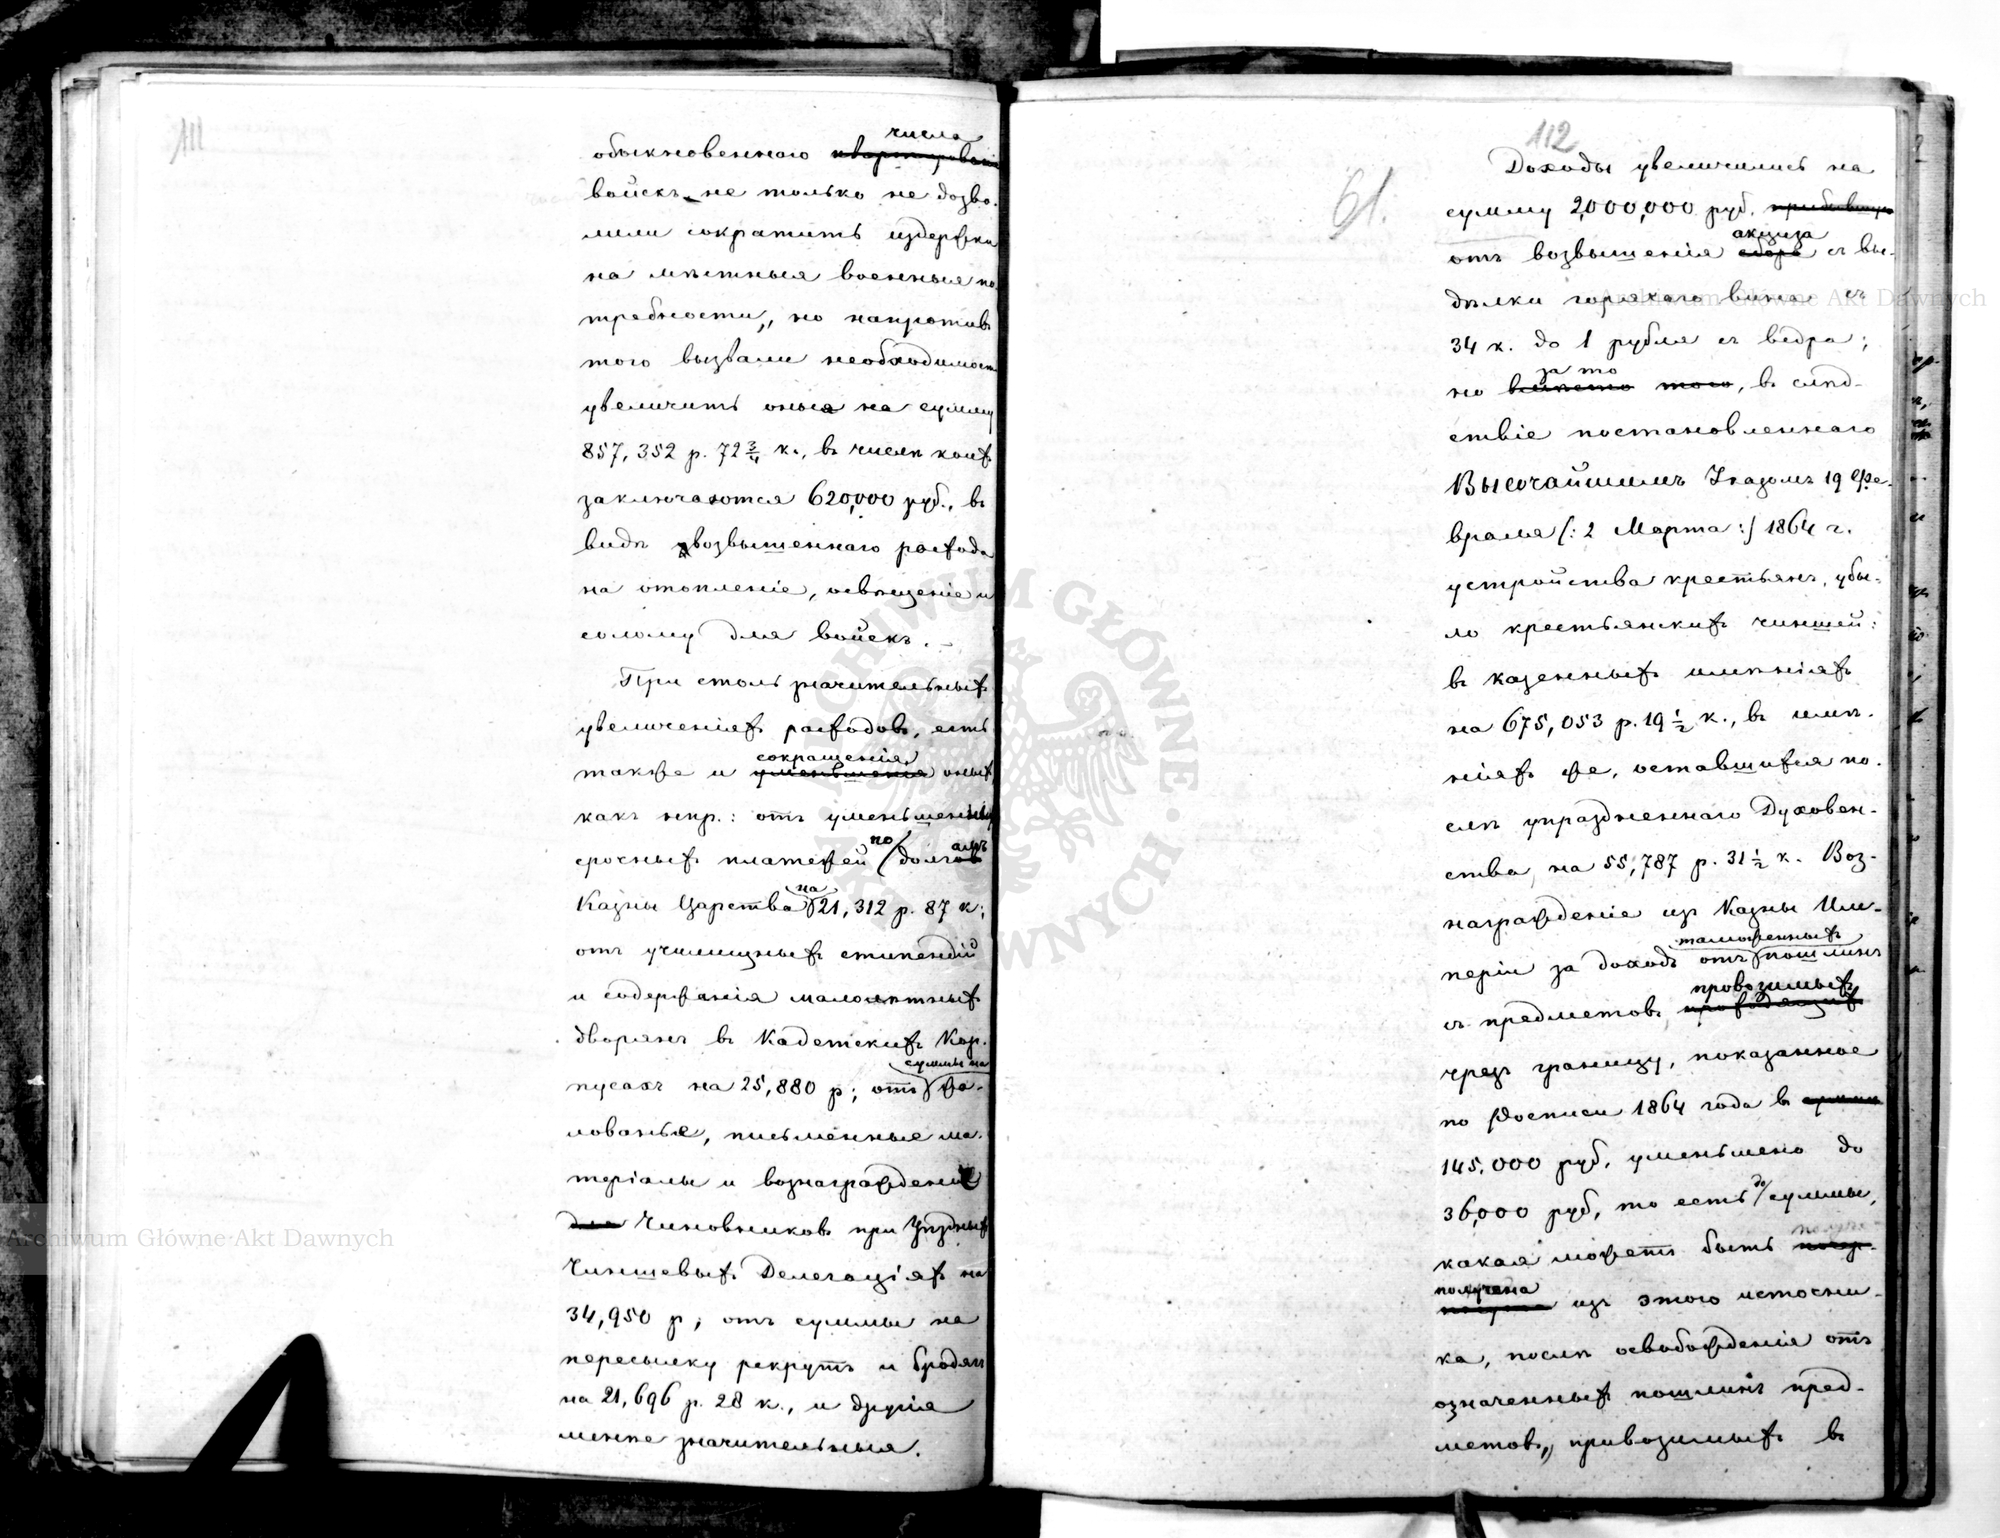 111
числа
обыкновеннаго квартированія
войскъ не только не дозво-
лили сократить издержки
на мѣстныя военныя по-
требности, но напротивъ
того вызвали необходимость
увеличить оныя на сумму
857,352 р. 72 3/4 к., въ числѣ коихъ
заключаются 620,000 руб., въ
видѣ возвышеннаго расхода
на отопленіе, освѣщеніе и
солому для войскъ.
При столь значительныхъ
увеличеніяхъ расходовъ, есть
сокращенія
также и уменьшенія оныхъ
какъ нпр.: отъ уменьшенныхъ
по амъ
срочныхъ платежей долговъ
на
Казны Царства 21,312 р. 87 к;
отъ училищныхъ стипендій
и содержанія малолѣтныхъ
дворянъ въ Кадетскихъ Кор-
суммы на
пусахъ на 25,880 р; отъ жа-
лованье, письменные ма-
теріалы и вознагражденіе
для Чиновниковъ при Уѣздныхъ
Чиншевыхъ Делегаціяхъ на
34,950 р; отъ суммы на
пересылку рекрутъ и бродягъ
на 21,696 р. 28 к., и другія
менѣе значительныя.
112
61.
Доходы увеличились на
сумму 2,000,000 руб. прибывшую
акциза
отъ возвышенія сбора съ вы-
дѣлки горячаго вина съ
34 к. до 1 рубля съ ведра;
за то
но вмѣсто того, въ слѣд-
ствіе постановленнаго
Высочайшимъ Указомъ 19 Фе-
враля /: 2 Марта :/ 1864 г.
устройства крестьянъ, убы-
ло крестьянскихъ чиншей:
въ казенныхъ имѣніяхъ
на 675,053 р. 19 1/2 к., въ имѣ-
ніяхъ же, оставшихся по-
слѣ упраздненнаго Духовен-
ства, на 55,787 р. 31 1/2 к. Воз-
награжденіе изъ Казны Им-
таможенныхъ
періи за доходъ отъ пошлинъ
провозимыхъ
съ предметовъ проходящихъ
чрезъ границу, показанное
по росписи 1864 года въ
145,000 руб. уменьшено до
до
36,000 руб, то есть суммы,
получе-
какая можетъ быть
получена
изъ этого источни-
ка, послѣ освобожденія отъ
означенныхъ пошлинъ пред-
метовъ, привозимыхъ въ
Archiwum Główne Akt Dawnych
Archiwum Główne Akt Dawnych
ARCHIWUM GŁÓWNE AKT DAWNYCH